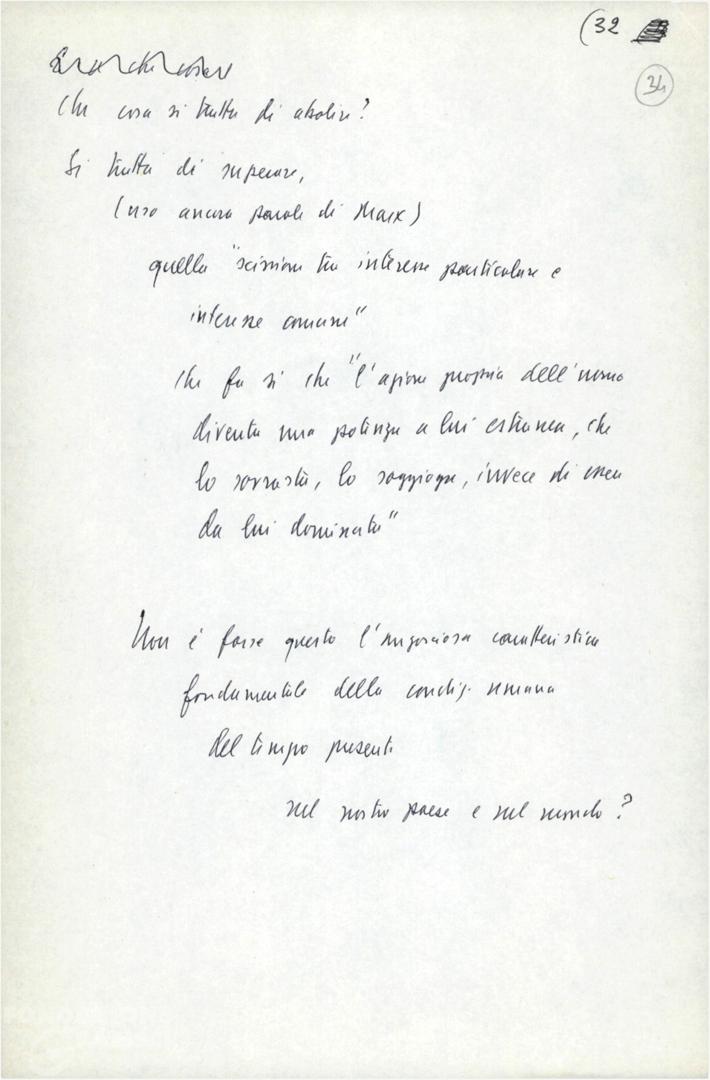 (32
34
Che cosa si tratta di abolire?
Si tratta di superare,
(uso ancora parole di Marx)
quella "scissione tra interesse particolare e
interesse comune"
che fa sì che "l'azione propria dell'uomo
diventa una potenza a lui estranea, che
lo sovrasta, lo soggioga, invece di essere
da lui dominata"
Non è forse questo l'angosciosa caratteristica
fondamentale della condiz. umana
del tempo presente
nel nostro paese e nel mondo?